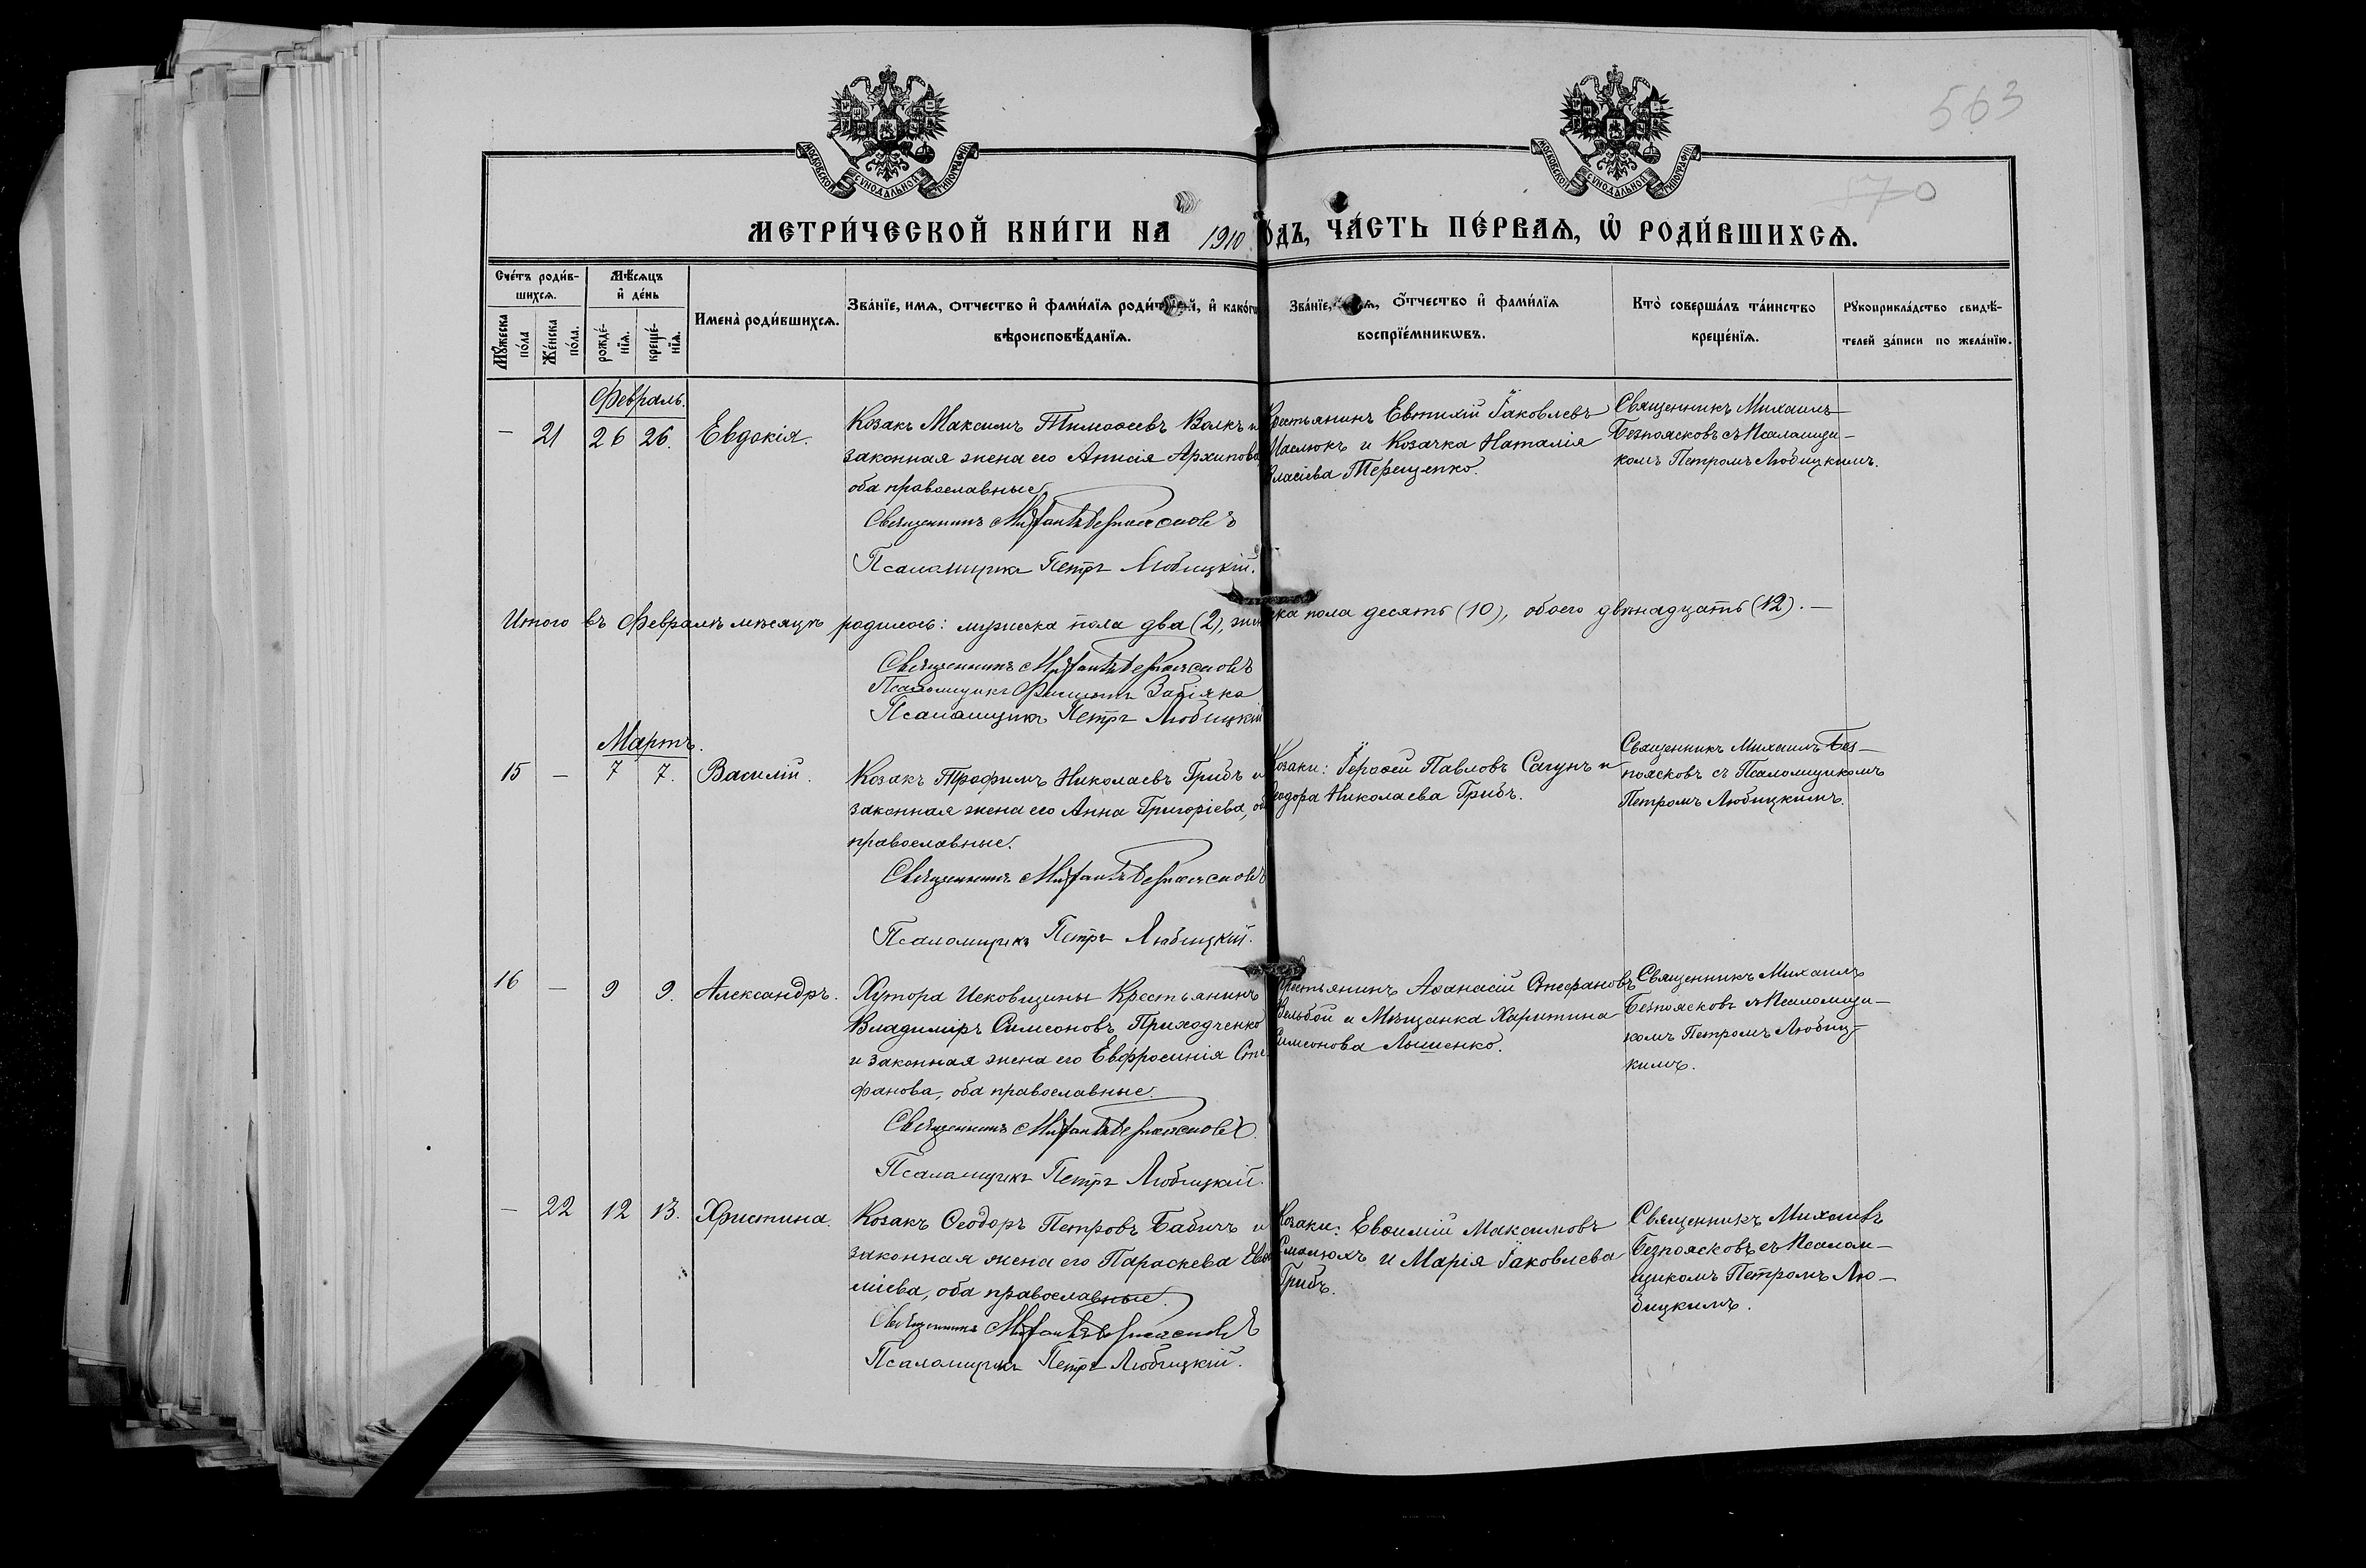 563
170
МОСКОВСКОЙ СУНОДАЛЬНОЙ ТИПОГРАФІИ
МОСКОВСКОЙ СУНОДАЛЬНОЙ ТИПОГРАФІИ
МЕТРИ́ЧЕСКОЙ КНИ́ГИ НА 1910 ГОДЪ, ЧА́СТЬ ПЕ́РВАѦ, Ѡ РОДИ́ВШИХСѦ.
Сче́тъ роди́в-
шихсѧ.
Мꙋ́жеска
по́ла
Же́нска
по́ла.
Мѣ́сѧцъ
и де́нь
рожде́-
нїѧ.
креще́-
нїѧ.
Имена̀ роди́вшихсѧ.
Зва́нїе, имѧ, отчество и фами́лїѧ роди́телей, и како́гѡ
вѣроисповѣ́данїѧ.
Зва́нїе, имѧ, о́тчество и фами́лїѧ
воспрїе́мникѡвъ.
Кто̀ соверша́лъ та́инство
креще́нїѧ.
Рꙋкоприкла́дство свидѣ́-
телей за́писи по жела́нїю.
Февраль.
— 21 26 26. Евдокія.
Козакъ Максимъ Тимоѳеевъ Волкъ и
законная жена его Анисія Архипова
оба православные
Священникъ Михаилъ Безпоясковъ
Псаломщикъ Петръ Любицкій.
Крестьянинъ Евтихій Іаковлевъ
Маслюкъ и Козачка Наталія
Власіева Терещенко.
Священникъ Михаилъ
Безпоясковъ съ Псаломщи-
комъ Петромъ Любицкимъ.
Итого въ Февралѣ мѣсяцѣ родилось: мужеска пола два (2), женска пола десять (10), обоего двѣнадцать (12). —
Священникъ Михаилъ Безпоясковъ
Псаломщикъ Забіяка
Псаломщикъ Петръ Любицкій
Мартъ.
15 — 7 7. Василій.
Козакъ Трофимъ Николаевъ Грибъ и
законная жена его Анна Григоріева, оба
православные.
Священникъ Михаилъ Безпоясковъ
Псаломщикъ Петръ Любицкій.
Козаки: Іероѳей Павловъ Сагунъ и
Ѳеодора Николаева Грибъ.
Священникъ Михаилъ Без-
поясковъ съ Псаломщикомъ
Петромъ Любицкимъ.
16 — 9 9. Александръ.
Хутора Исковщины Крестьянинъ
Владиміръ Симеоновъ Приходченко
и законная жена его Евфросинія Сте-
фанова, оба православные.
Священникъ Михаилъ Безпоясковъ
Псаломщикъ Петръ Любицкій.
Крестьянинъ Аѳанасій Стефановъ
и Мѣщанка Харитина
Симеонова Лышенко.
Священникъ Михаилъ
Безпоясковъ съ Псаломщи-
комъ Петромъ Любиц-
кимъ.
— 22 12 13. Христина.
Козакъ Ѳеодоръ Петровъ Бабичъ и
законная жена его Параскева Евѳи
міева, оба православные.
Священникъ Михаилъ Безпоясковъ
Псаломщикъ Петръ Любицкій.
Козаки: Евѳимій Максимовъ
Смалюхъ и Марія Іаковлева
Грибъ.
Священникъ Михаилъ
Безпоясковъ съ Псалом-
щикомъ Петромъ Лю-
бицкимъ.